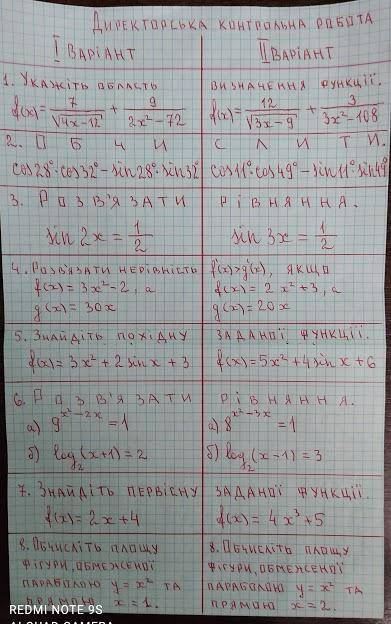 Директорська контрольна робота
I Варіант II Варіант
1. Укажіть область визначення функції.
f(x)= 7/√4x-12 + 9/2x²-72 f(x)= 12/√3x-9 + 3/3x²-108
2. Обчислити.
cos28°·cos32°-sin28°·sin32° cos11°·cos49°-sin11°·sin49°
3. Розв'язати рівняння.
sin2x=1/2 sin3x=1/2
4. Розв'язати нерівність f'(x)>g'(x), якщо
f(x)=3x³-2, а f(x)=2x²+3, а
g(x)=30x g(x)=20x
5. Знайдіть похідну заданої функції.
f(x)=3x²+2sinx+3 f(x)=5x²+4sinx+6
6. Розв'язати рівняння.
а) 9^x²-2x=1 а) 8^x²-3x=1
б) log₂(x+1)=2 б) log₂(x-1)=3
7. Знайдіть первісну заданої функції.
f(x)=2x+4 f(x)=4x³+5
8. Обчисліть площу 8. Обчисліть площу
фігури, обмеженої фігури, обмеженої
параболою y=x² та параболою y=x² та
прямою x=1. прямою x=2.
REDMI NOTE 9S
AI QUAD CAMERA